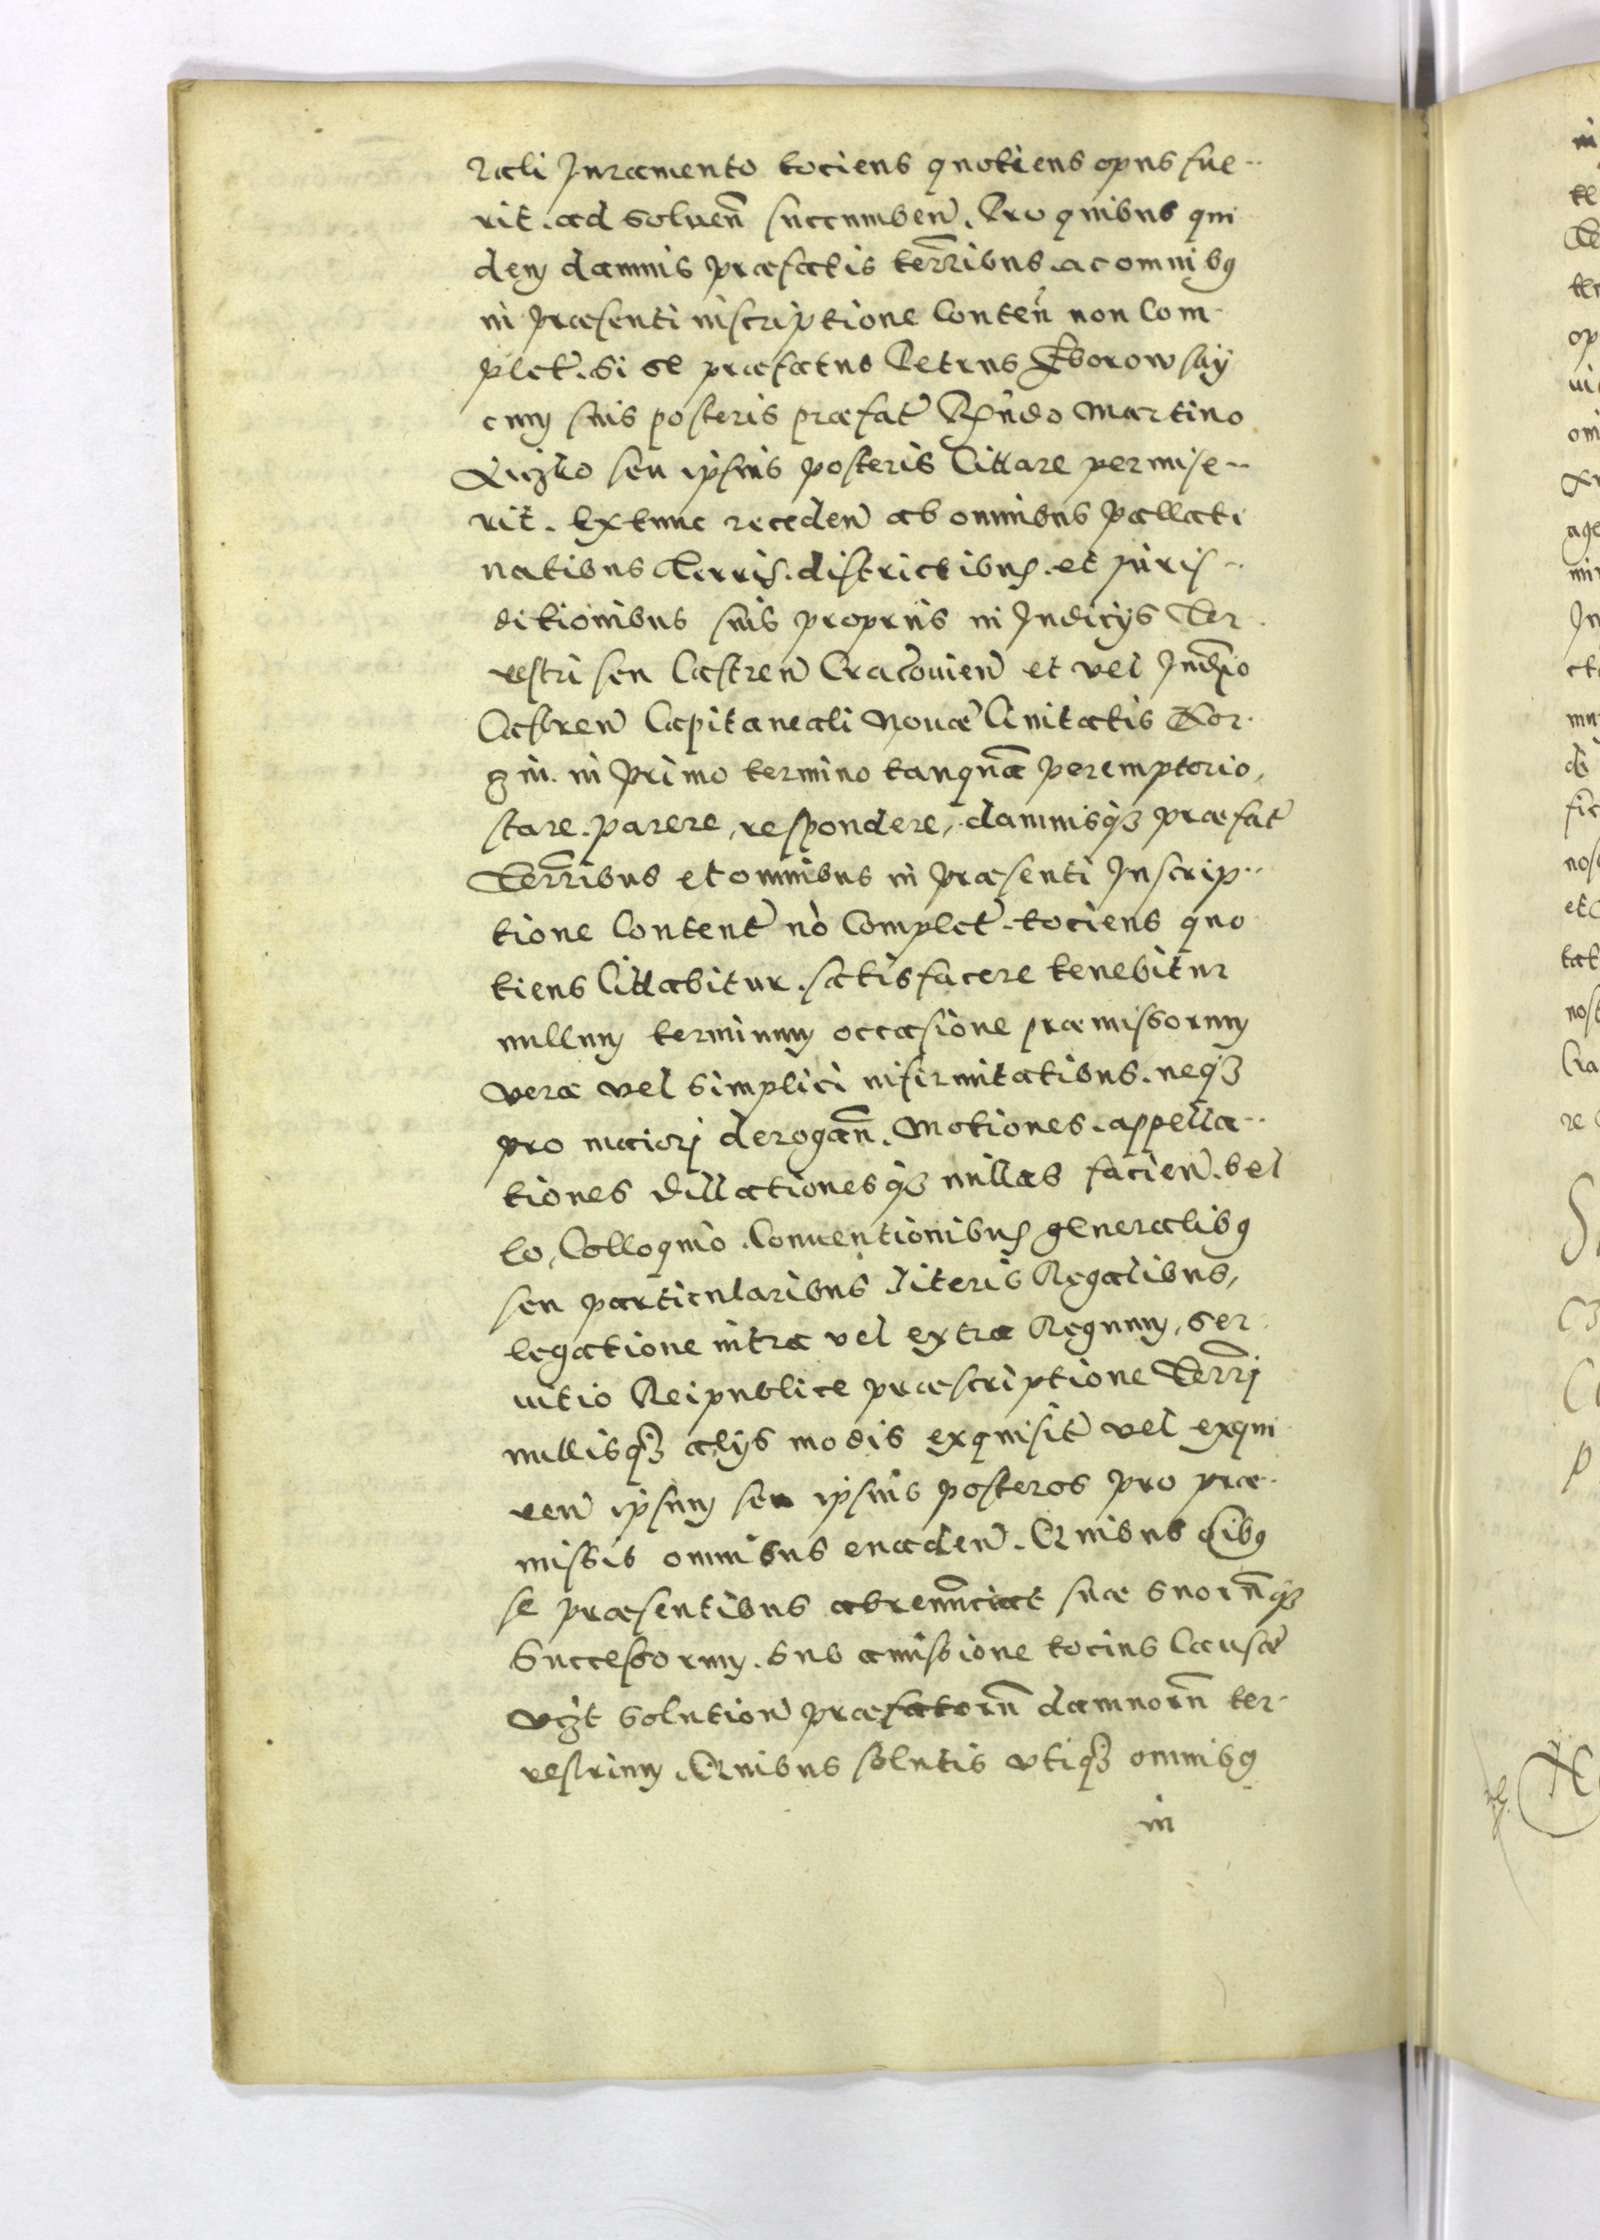 rali Juramento tociens quotiens opus fue-
rit. ad soluen̄ succumben̄. Pro quibus qui
dem damnis præfatis terr̄ibus. ac omnibus
in præsenti inscriptione Conten̄ non Com-
plet̄. Si se præfatus Petrus Zborowsky
cum suis posteris præfat̄ Rn̄do Martino
seu ipsius posteris Cittare permise-
rit. Extunc receden̄ ab omnibus Pallati
natibus Terris. districtibus. et juris-
ditionibus suis proprijs in Judicijs Ter-
restri seu Castren̄ Cracouien̄ et vel Judicio
Castren̄ Capitaneali Nouæ Ciuitatis Kor-
zin. in primo termino tanquā peremptorio,
stare. parere, respondere, damnisq3 præfat̄
Terr̄ibus et omnibus in præsenti Inscrip-
tione Content̄ nō Complet̄. tociens quo
tiens Cittabitur. satisfacere tenebitur
nullum terminum occasione præmissorum
vera vel simplici infirmitatibus. neq3
pro maiori derogan̄. Motiones. appella-
tiones dillationesq3 nullas facien̄. bel
lo, Colloquio. Conuentionibus generalibus
seu particularibus literis Regalibus,
legatione intra vel extra Regnum, ser-
uitio Reipublice præscriptione Terr̄j
nullisq3 alijs modis exquisit̄ vel exqui
ren̄ ipsum seu ipsius posteros pro præ-
missis omnibus euaden̄. Quibus q̄ibus
se præsentibus abrenunciat suæ suorūq3
Successorum. Sub amissione tocius Causæ
vz̄t solution̄ præfatorū damnorū ter-
restrium. Quibus solutis vtiq3 omnibus
in